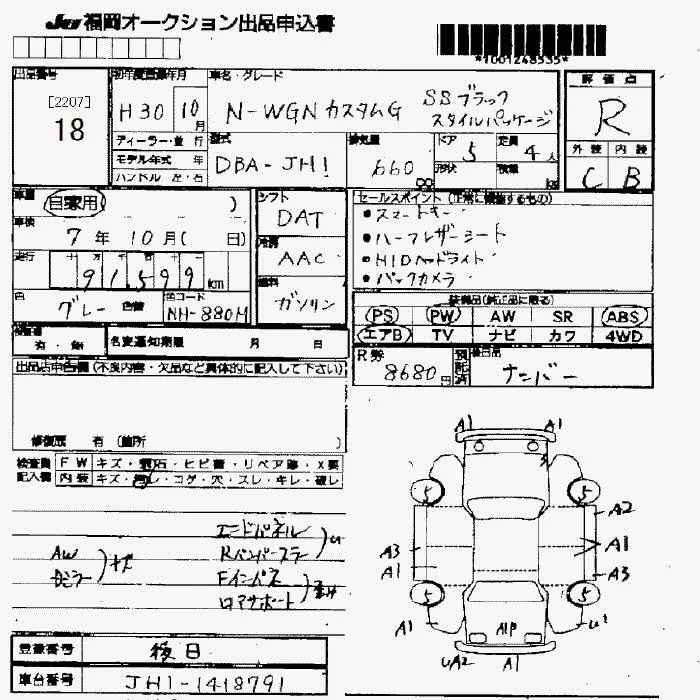 JU福岡オークション出品申込書
*1001248535*
出品番号
[2207]
18
初年度登録年月
H30 10月
ディーラー・並行
モデル年式 年
ハンドル 左・右
車名・グレード
N-WGNカスタムG SSブラックスタイルパッケージ
型式
DBA-JH1
排気量
660
cc
ドア
5
定員
4人
形状
積載
kg
評価点
R
外装 内装
C B
車歴
自家用 )
車検
7年10月( 日)
走行
91,599km
色
グレー 色替
色コード
NH-880M
シフト
DAT
冷房
AAC
燃料
ガソリン
セールスポイント(正常に機能するもの)
●スマートキー
●ハーフレザーシート
●HIDヘッドライト
●バックカメラ
装備品(純正品に限る)
PS PW AW SR ABS
エアB TV ナビ カワ 4WD
有・無
名変通知期限 月 日
R券
8680円
後日品
ナンバー
出品店申告欄(不良内容・欠品など具体的に記入して下さい)
修復歴 有(箇所 )
検査員記入欄
FW キズ・飛石・ヒビ書・リペア跡・X要
内装 キズ・汚レ・コゲ・穴・スレ・キレ・破レ
AW
ドミラー
キズ
エンドパネル
Rバンパーフラー
Fインパネ
ロアサポート
A1 A1
5 5
A2
A3 A1
A1 A3
5 5
A1 A1P U1
UA2 A1
登録番号 後日
車台番号 JH1-1418791